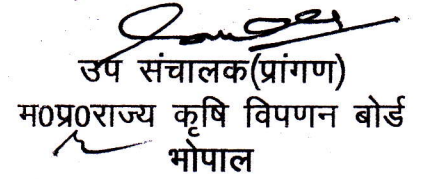 उप संचालक(प्रांगण)
म0प्र0राज्य कृषि विपणन बोर्ड
भोपाल